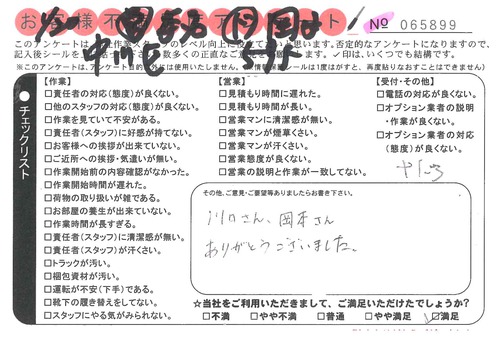 お客様不満足度アンケート
№ 065899
このアンケートは、
否定的なアンケートになりますので、
記入後シールを
数多くの正直なご意見を
✓印は、いくつでも結構です。
※このアンケートは、アンケート目的以外には使用いたしません。
保護シールは1度はがすと、再度貼りなおすことはできません)
チェックリスト
【作業】
□責任者の対応(態度)が良くない。
□他のスタッフの対応(態度)が良くない。
□作業を見ていて不安がある。
□責任者(スタッフ)に好感が持てない。
□お客様への挨拶が出来ていない。
□ご近所への挨拶・気遣いが無い。
□作業開始前の内容確認がなかった。
□作業開始時間が遅れた。
□荷物の取り扱いが雑である。
□お部屋の養生が出来ていない。
□作業時間が長すぎる。
□責任者(スタッフ)に清潔感が無い。
□責任者(スタッフ)が汗くさい。
□トラックが汚い。
□梱包資材が汚い。
□運転が不安(下手)である。
□靴下の履き替えをしてない。
□スタッフにやる気がみられない。
【営業】
□見積もり時間に遅れた。
□見積もり時間が長い。
□営業マンに清潔感が無い。
□営業マンが煙草くさい。
□営業マンが汗くさい。
□営業態度が良くない。
□営業の説明と作業が一致してない。
【受付・その他】
□電話の対応が良くない。
□オプション業者の説明
・作業が良くない。
□オプション業者の対応
(態度)が良くない。
その他、ご意見・ご要望等ありましたらお書き下さい。
さん、岡本さん
ありがとうございました。
☆当社をご利用いただきまして、ご満足いただけたでしょうか?
□不満 □やや不満 □普通 □やや満足 ☑満足